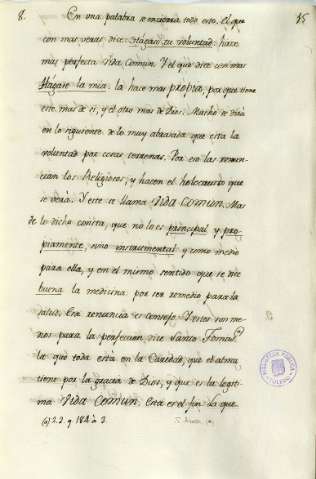 8. En una palabra se encierra todo esto. El que 15
con mas veras dice Hágase tu voluntad: hace
mas perfecta vida Comun. Y el que dice con mas
Hágase la mia: la hace mas propria, porque tiene
este mas de si, y el otro mas de Dios. Mucho se dirá
en lo siguiente de lo muy abrasada que esta la
voluntad por cosas terrenas. Por eso las renun-
cian los Religiosos, y hacen el holocausto que
se verá. Y este se llama Vida Comun. Mas
de lo dicho consta, que no lo es principal y pro-
piamente, sino instrumental y como medio
para ella, y en el mismo sentido que se dice
buena la medicina por ser remedio para la
salud. Esta renuncia es consejo. Y estos son me-
dios para la perfeccion, dice Santo Tomas (a)
la qual toda está en la Caridad, que el alma
tiene por la gracia de Dios, y que es la legiti-
ma Vida Comun. Esta es el fin la que
(a) 2.2. q 184 à 3.
BIBLIOTECA PUBLICA
TOLEDO